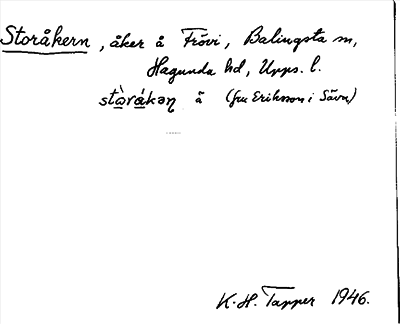 Storåkern, åker å Frövi, Balingsta sn,
Hagunda hd, Upps. l.
stòråkəɳ å (fru Eriksson i Säva)
K.H. Tapper 1946.